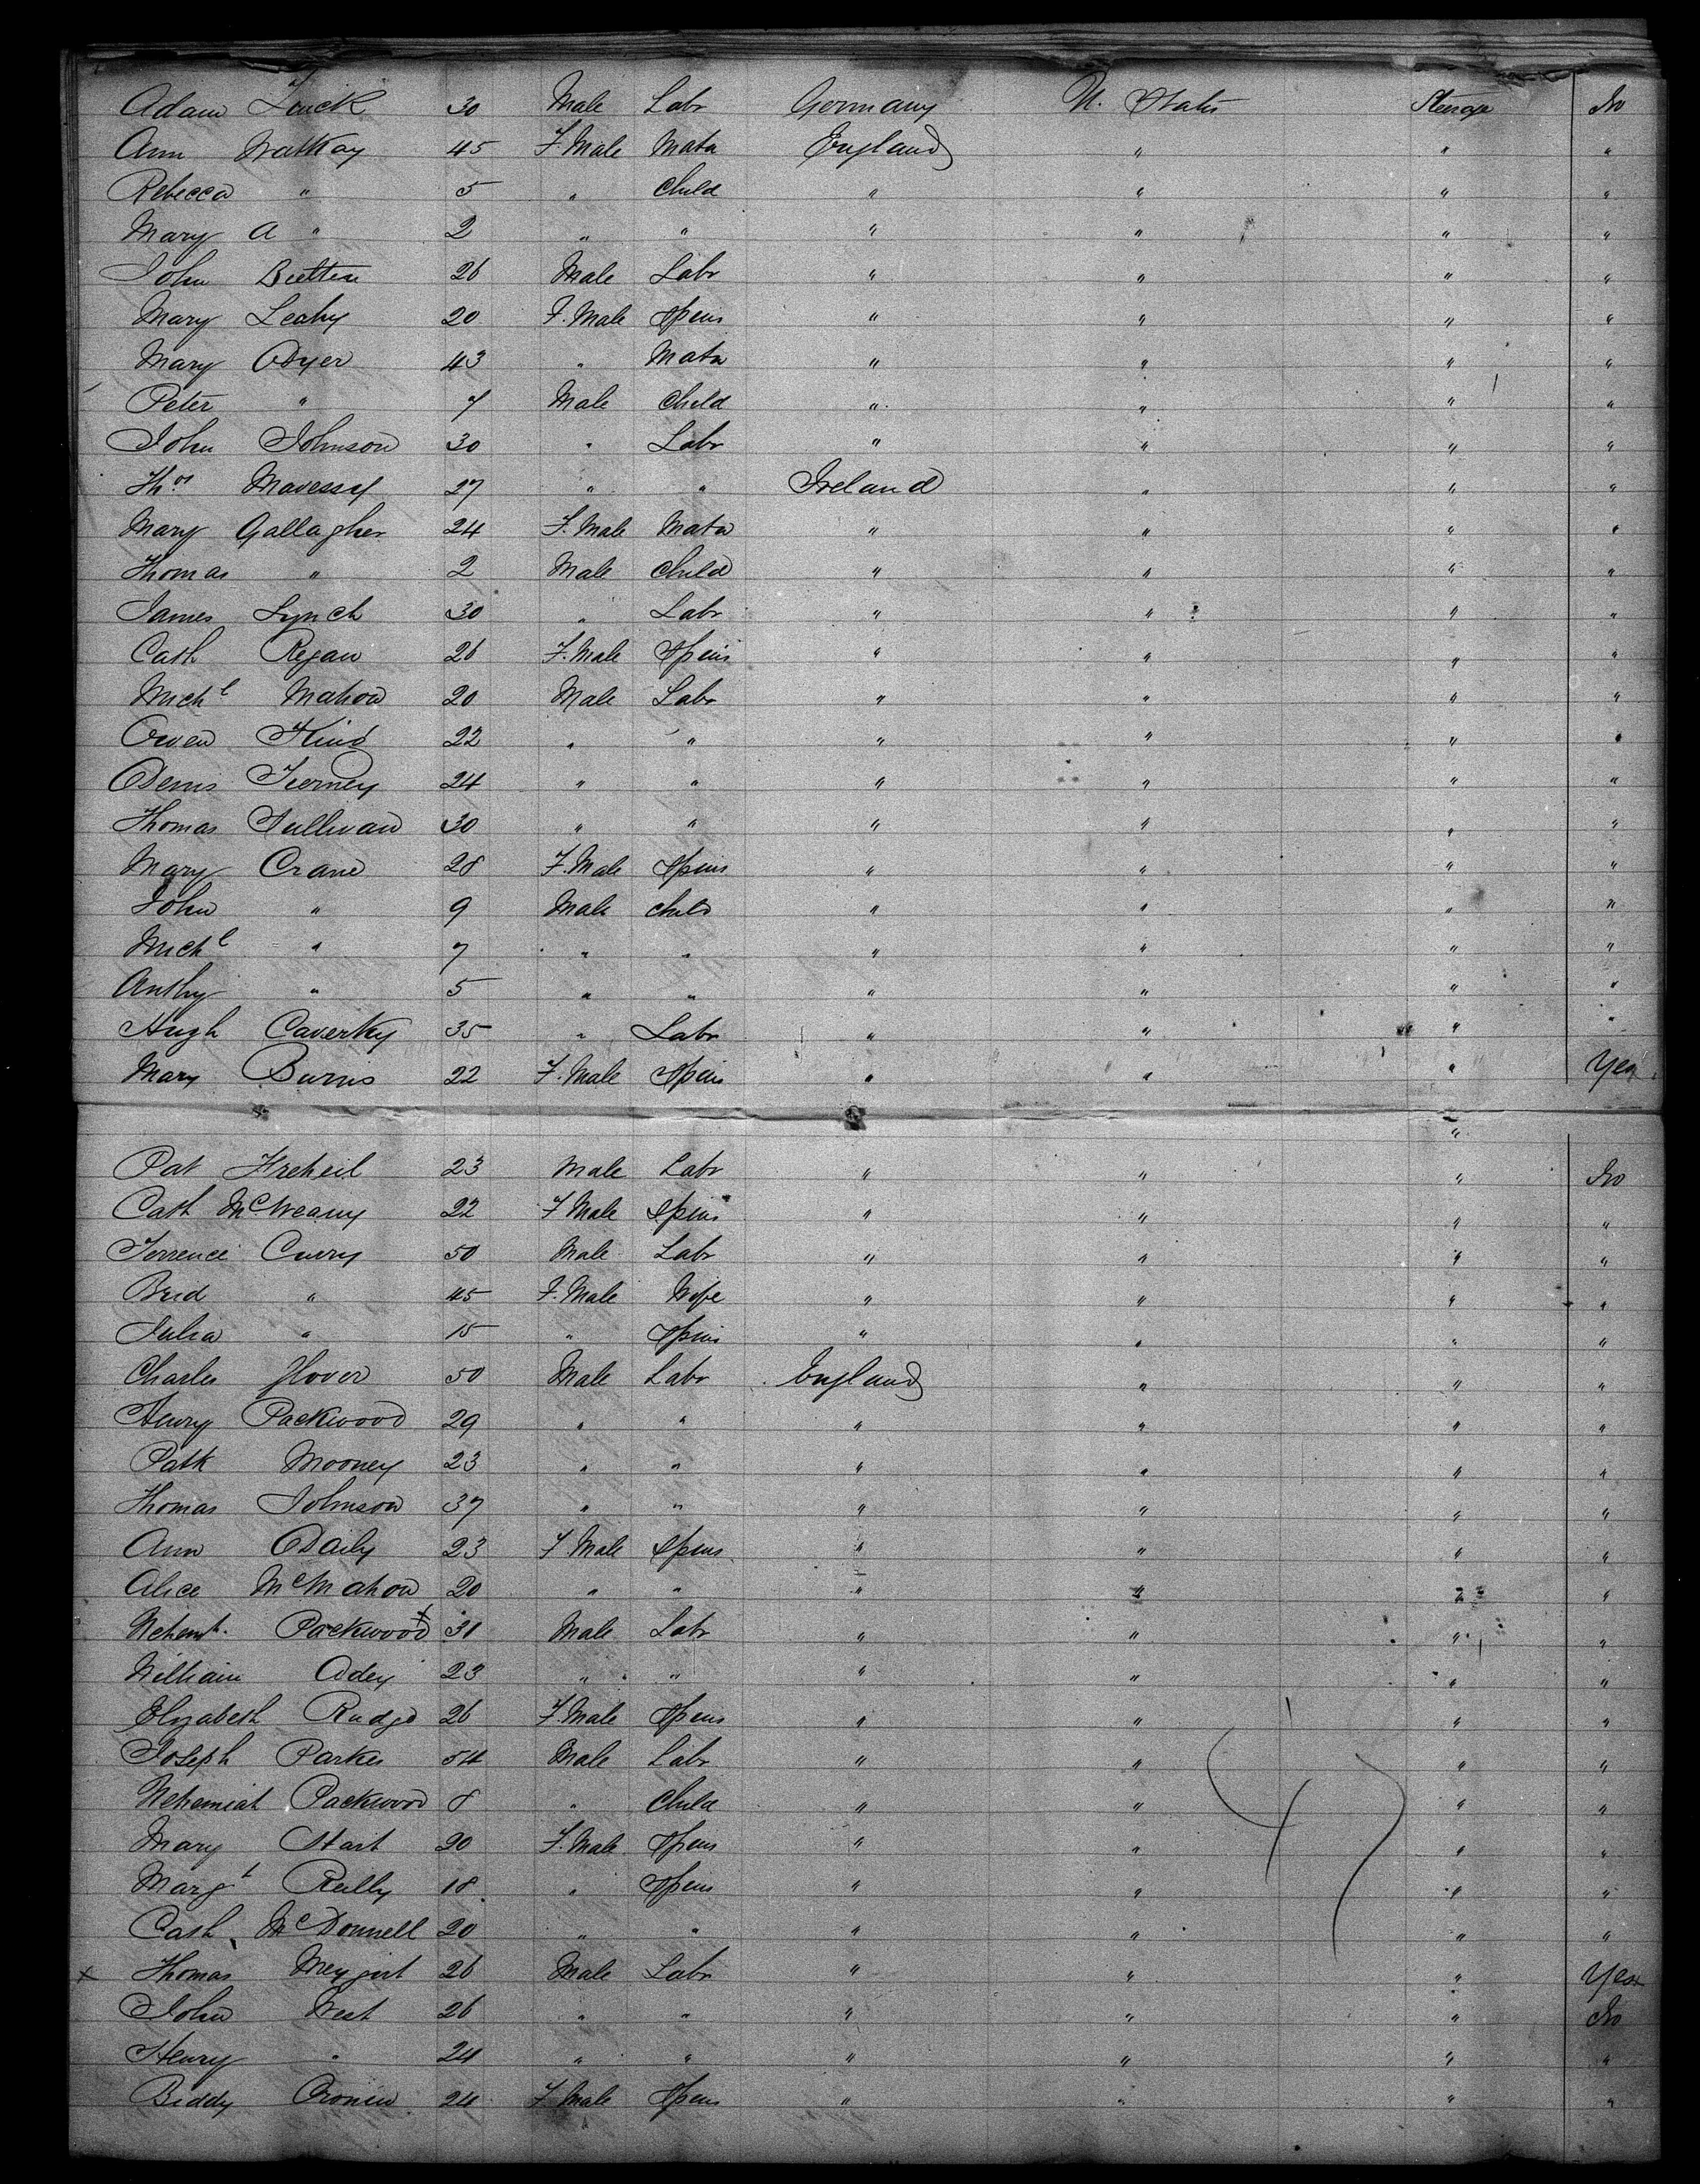 Adam 30 Male Labr Germany U. States Steerage No
Ann Watkay 45 F. Male Mata England " " "
Rebecca " 5 " Child " " " "
Mary A " 2 " " " " " "
John 26 Male Labr " " " "
Mary Leahy 20 F. Male Spins " " " "
Mary Dyer 43 " Mata " " " "
Peter " 7 Male Child " " " "
John Johnson 30 " Labr " " " "
Thos 27 " " Ireland " " "
Mary Gallagher 24 F. Male Mata " " " "
Thomas " 2 Male Child " " " "
James Lynch 30 " Labr " " " "
Cath Regan 26 F. Male Spins " " " "
Michl Mahon 20 Male Labr " " " "
Owen King 22 " " " " " "
Denis Tierney 24 " " " " " "
Thomas Sullivan 30 " " " " " "
Mary Crane 28 F. Male Spins " " " "
John " 9 Male Child " " " "
Michl " 7 " " " " " "
Anthy " 5 " " " " " "
Hugh 35 " Labr " " " "
Mary Burns 22 F. Male Spins " " " Yes
"
Pat 23 Male Labr " " " No
Cath 22 F Male Spins " " " "
Terrence Curry 50 Male Labr " " " "
Brid " 45 F. Male Wife " " " "
Julia " 15 " Spins " " " "
Charles Glover 50 Male Labr England " " "
Henry Packwood 29 " " " " " "
Patk Mooney 23 " " " " " "
Thomas Johnson 37 " " " " " "
Ann Daily 23 F. Male Spins " " " "
Alice McMahon 20 " " " " " "
Nehemh. Packwood 31 Male Labr " " " "
William Adey 23 " " " " " "
Elizabeth Rudge 26 F. Male Spins " " " "
Joseph Parker 54 Male Labr " " " "
Nehemiah Packwood 8 " Child " " " "
Mary Hart 20 F. Male Spins " " " "
Margt Reilly 18 " Spins " " " "
Cath McDonnell 20 " " " " " "
x Thomas 26 Male Labr " " " Yes
John West 26 " " " " " No
Henry " 24 " " " " " "
Biddy Cronin 24 F. Male Spins " " " "